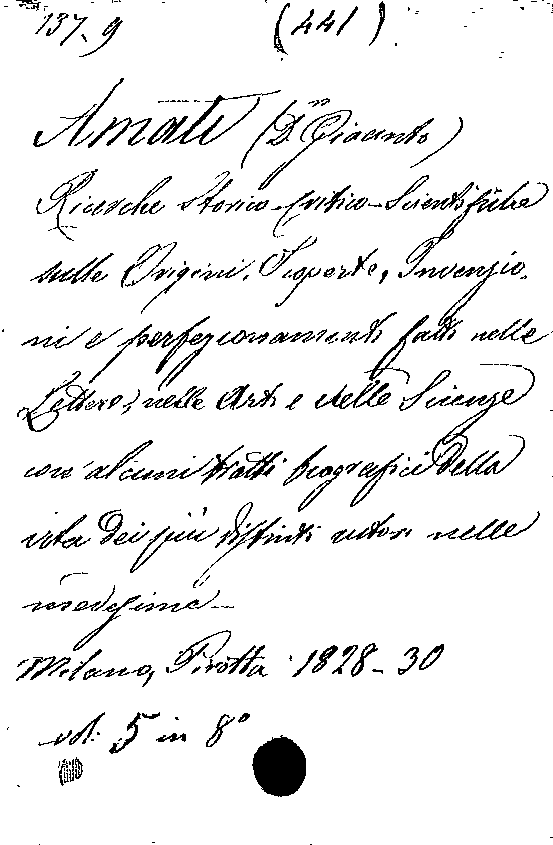 137. 9 (441)
Amati (D.n Giacinto)
Ricerche Storico-Critico-Scientifiche
sulle Origini, Scoperte, Invenzio-
ni e perfezionamenti fatti nelle
Lettere, nelle Arti e nelle Scienze
con alcuni tratti biografici della
vita dei più distinti autori nelle
medesime -
Milano, Pirotta 1828-30
vol. 5 in 8°